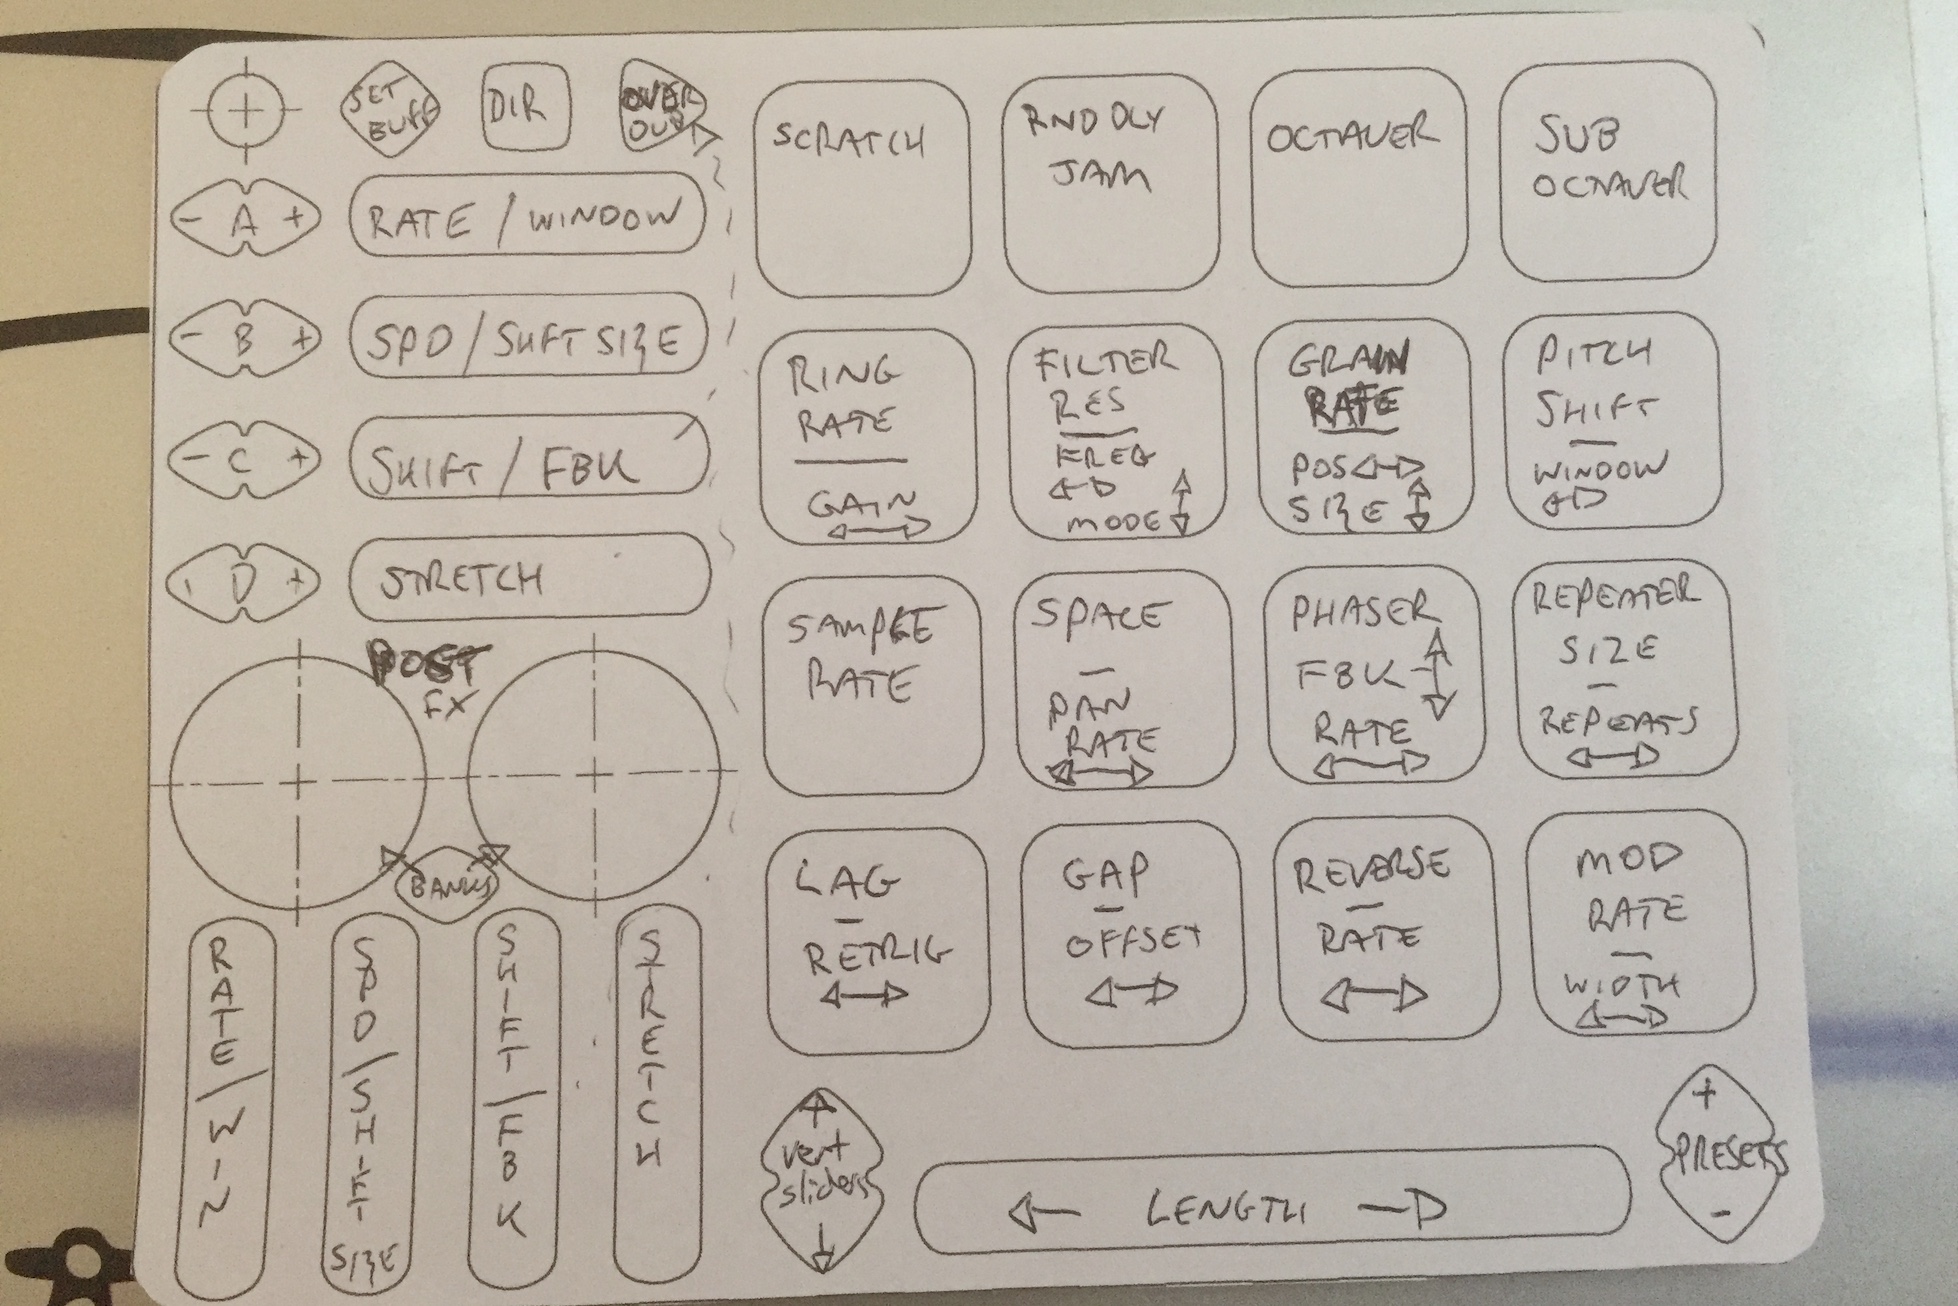 SET
BUFF
DIR
OVER
DUB
- A +
RATE / WINDOW
- B +
SPD / SHFT SIZE
- C +
SHIFT / FBK
- D +
STRETCH
POST
FX
BANKS
RATE/WIN
SPD/SHIFT
SIZE
SHIFT/FBK
STRETCH
SCRATCH
RND DLY
JAM
OCTAVER
SUB
OCTAVER
RING
RATE
GAIN
FILTER
RES
FREQ
MODE
GRAIN
RATE
POS
SIZE
PITCH
SHIFT
WINDOW
SAMPLE
RATE
SPACE
PAN
RATE
PHASER
FBK
RATE
REPEATER
SIZE
REPEATS
LAG
RETRIG
GAP
OFFSET
REVERSE
RATE
MOD
RATE
WIDTH
vert
sliders
LENGTH
+
PRESETS
-